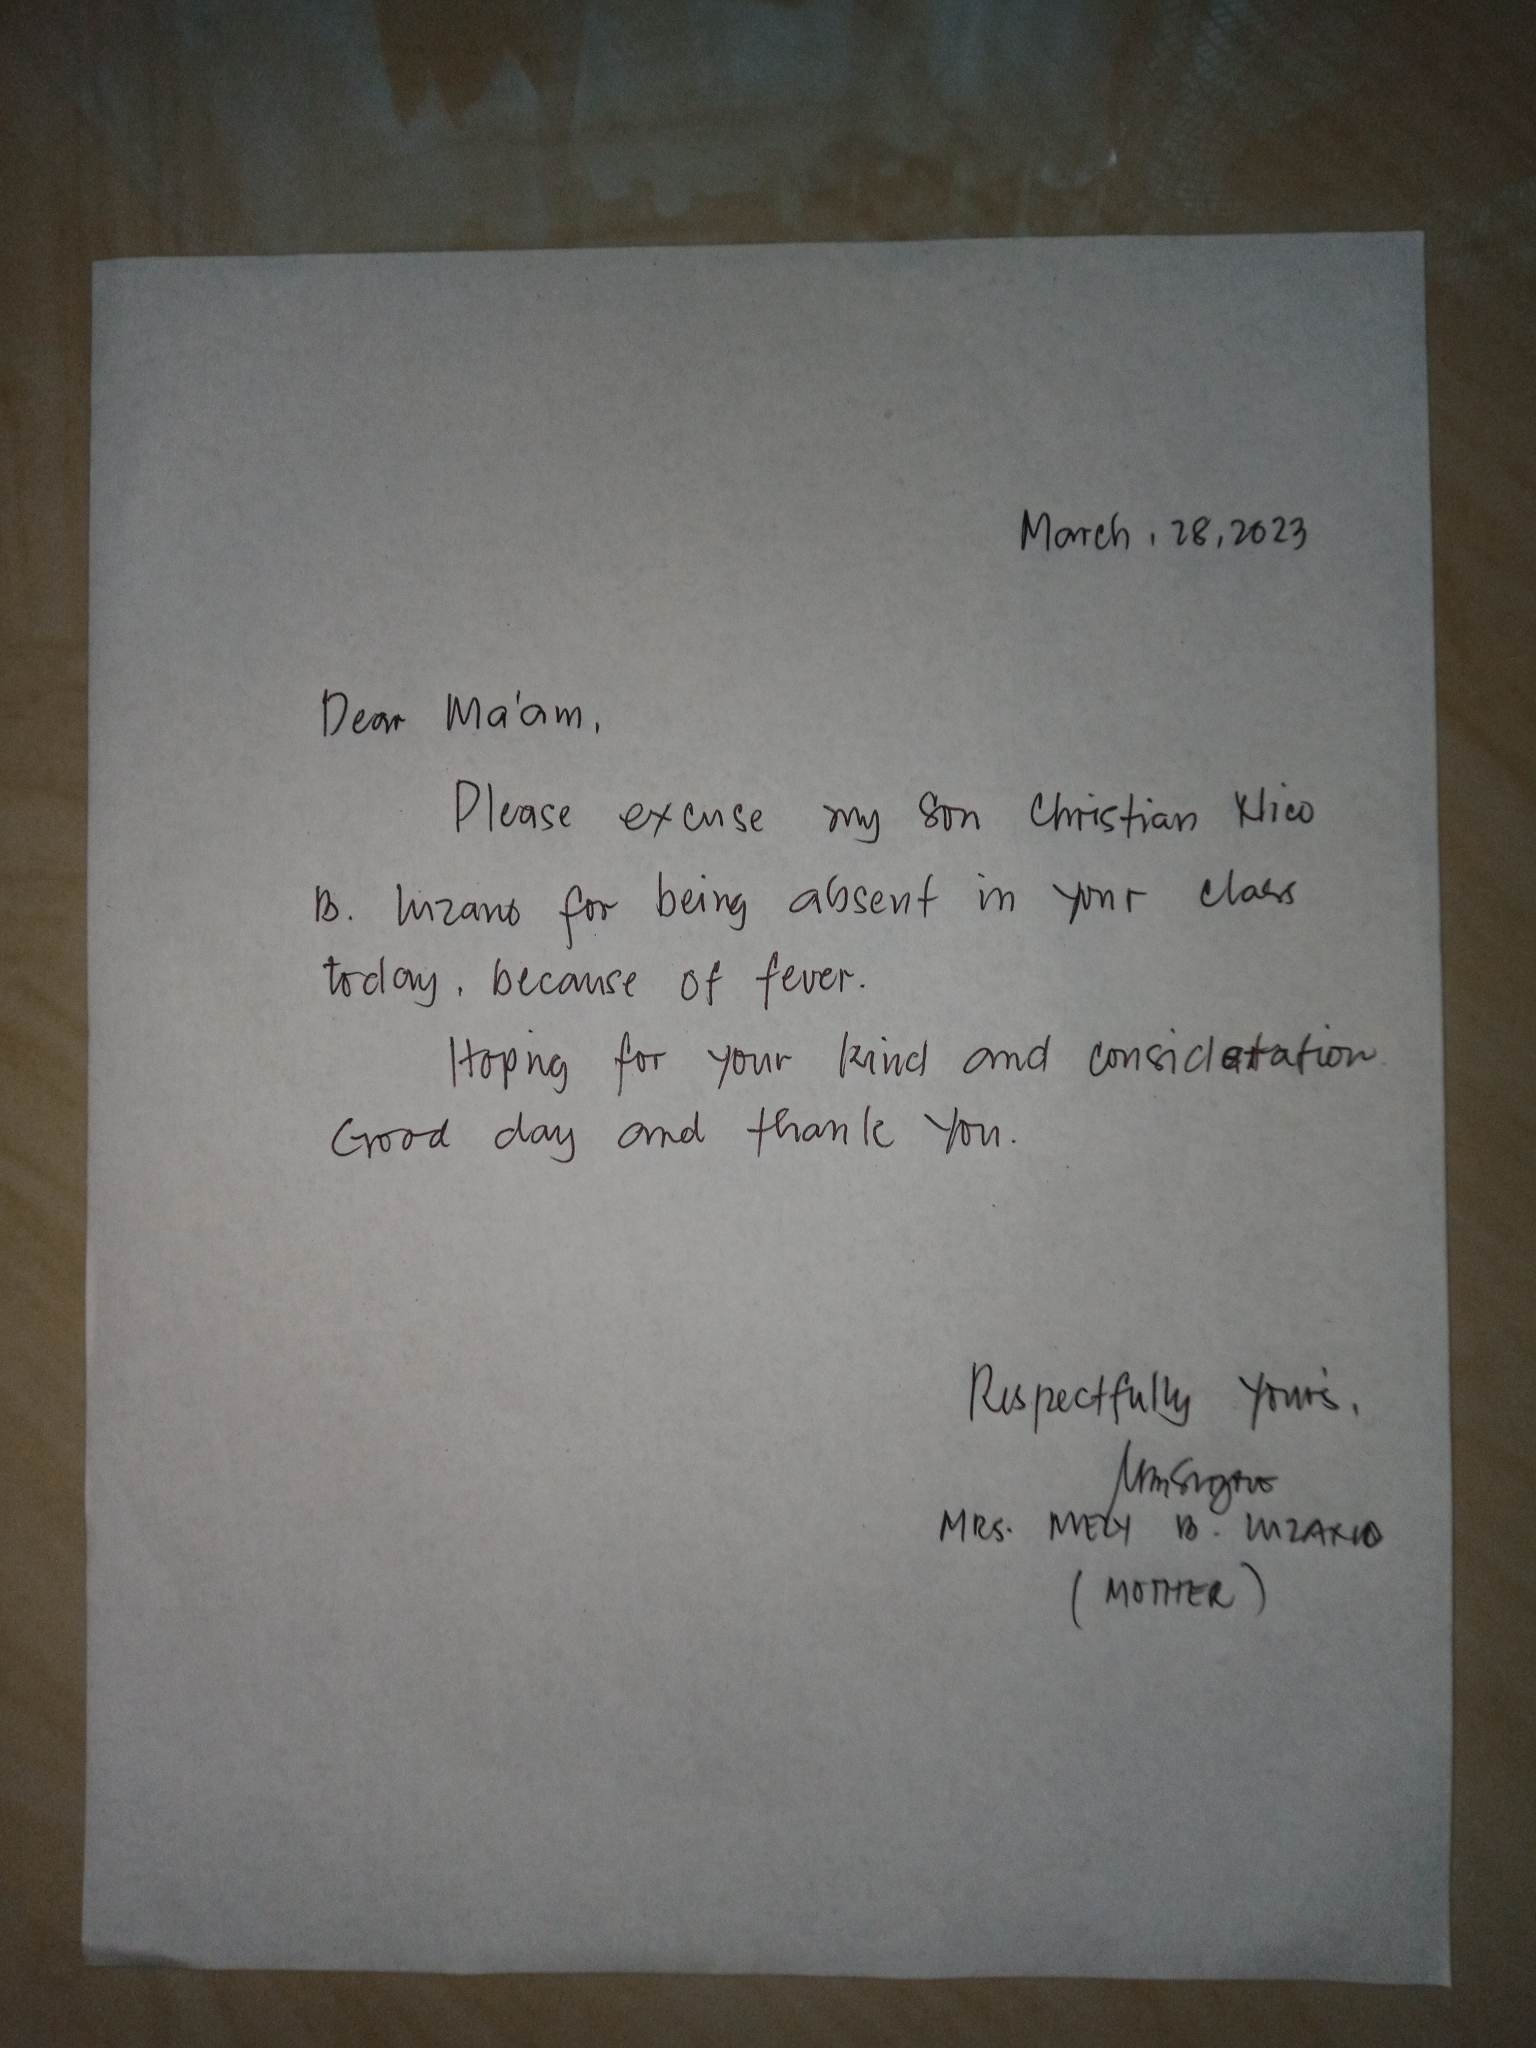 March, 28, 2023
Dear Ma'am,
Please excuse my son Christian Nico
B. Luzano for being absent in your class
today, because of fever.
Hoping for your kind and consideration.
Good day and thank you.
Respectfully Your's,
MRS. MELY B. LUZANO
(MOTHER)